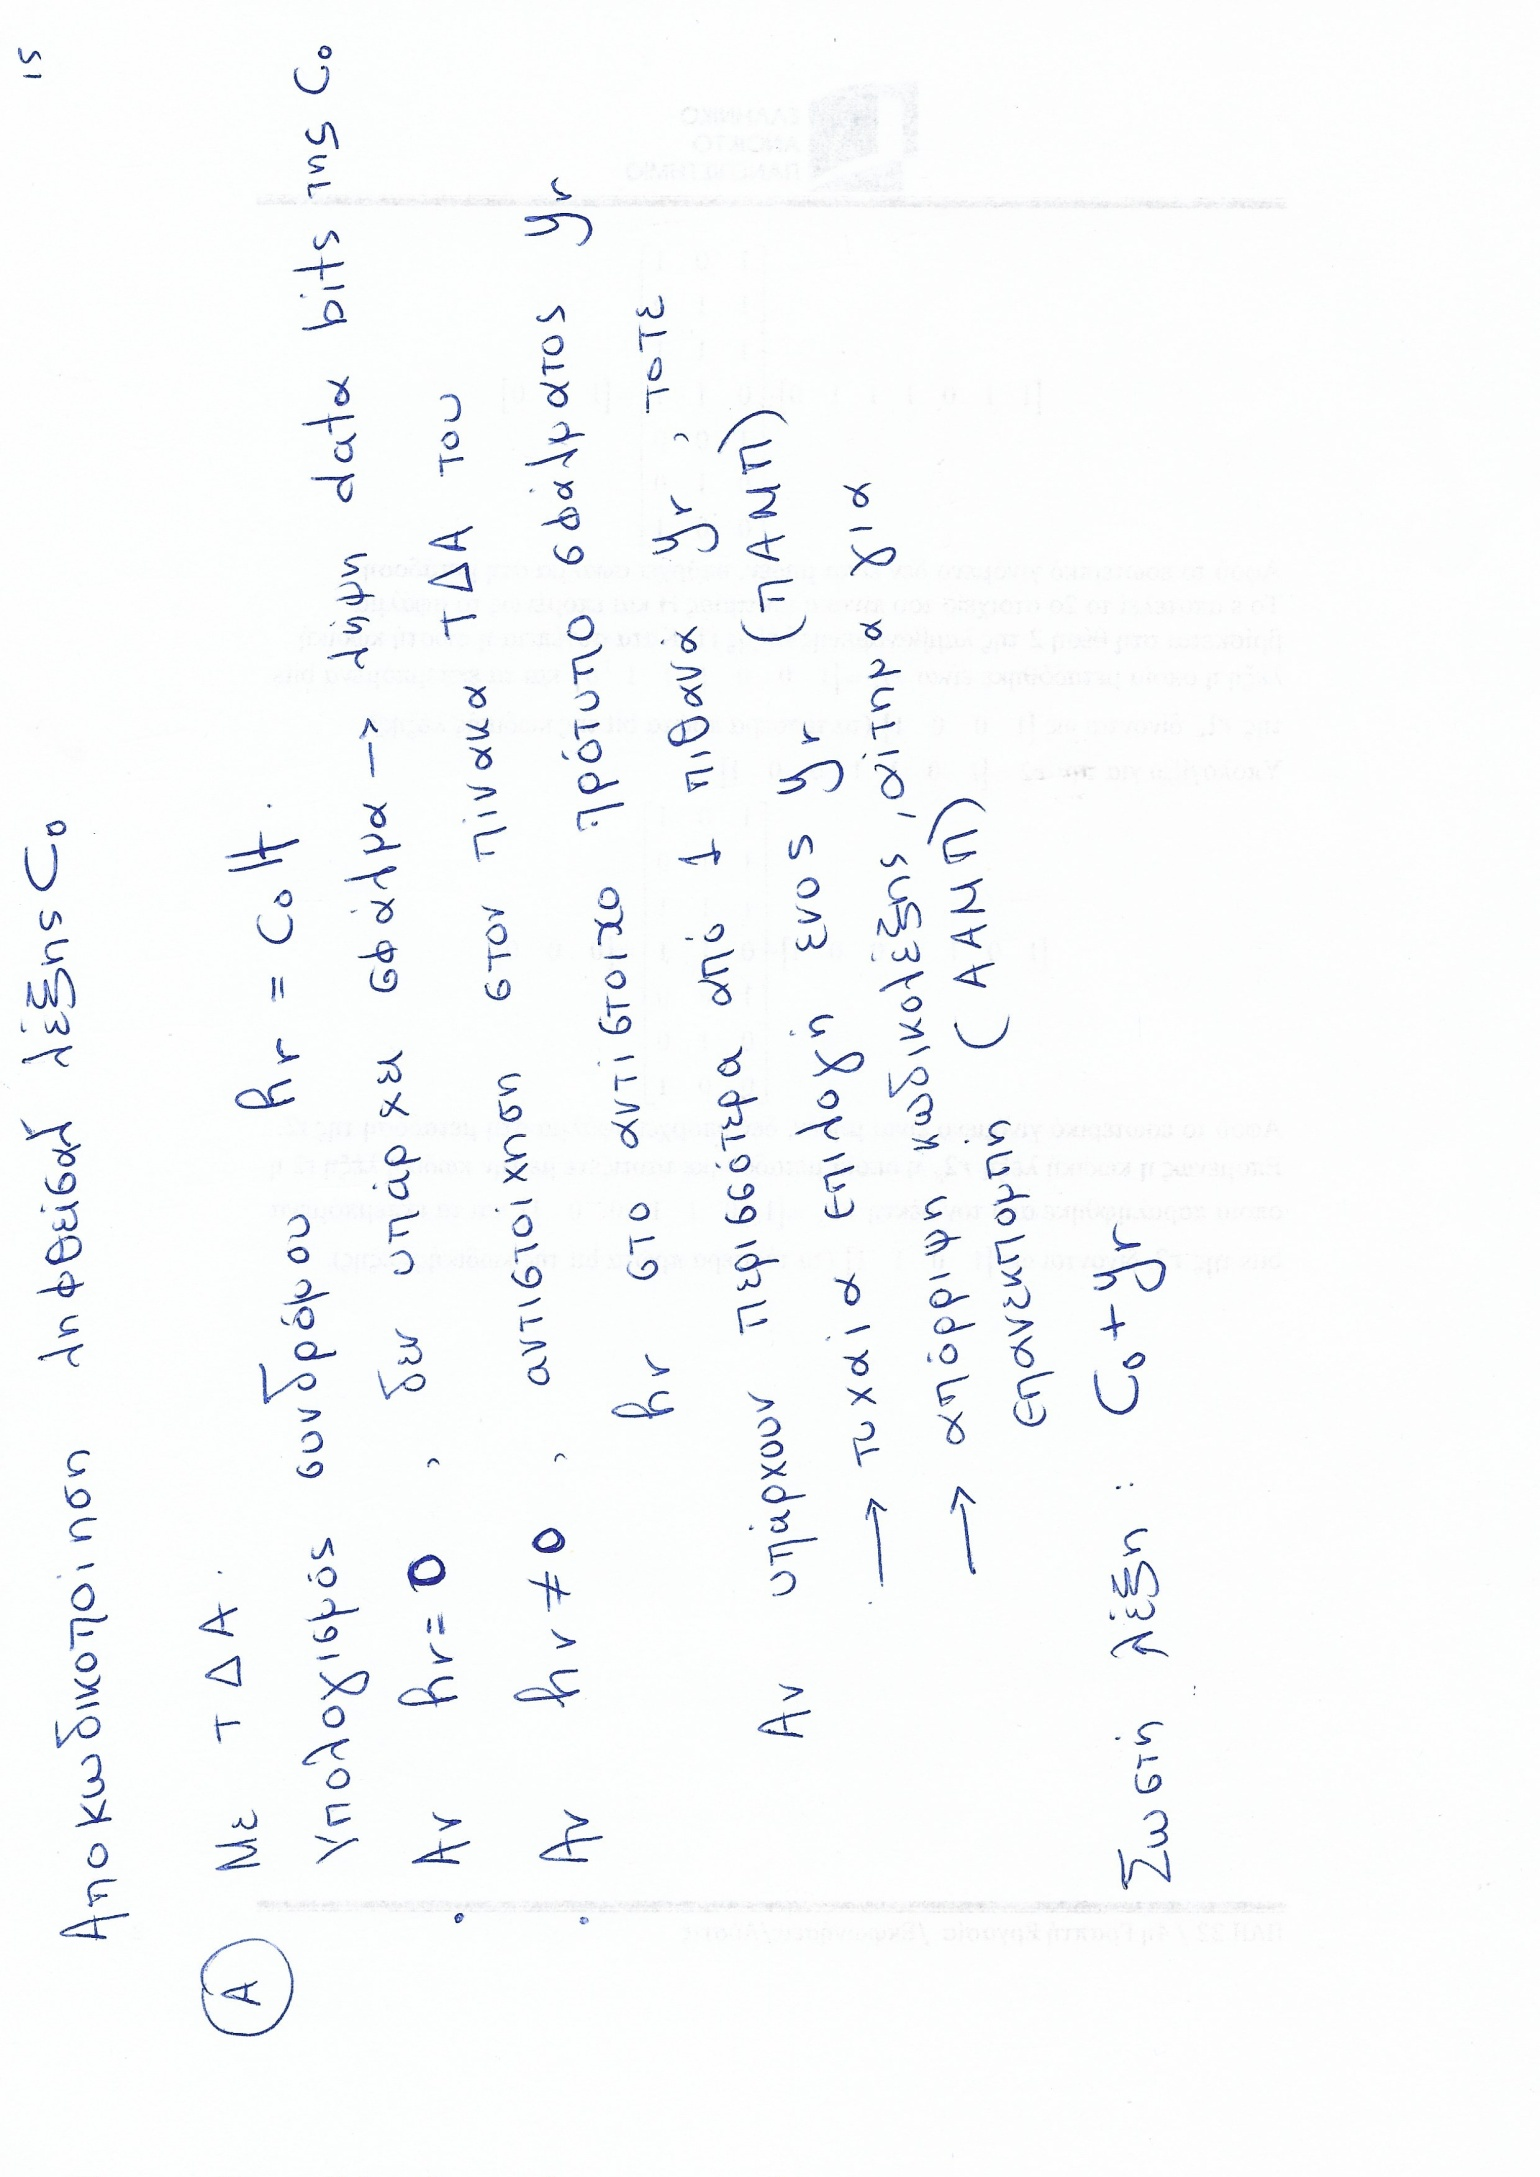 15
Αποκωδικοποίηση ληφθείσας λέξης C₀
Α Με ΤΔΑ.
Υπολογισμός συνδρόμου hr = C₀H.
• Αν hr = 0, δεν υπάρχει σφάλμα → λήψη data bits της C₀
• Αν hr ≠ 0, αντιστοίχηση στον πίνακα ΤΔΑ του
hr στο αντίστοιχο πρότυπο σφάλματος yr
Αν υπάρχουν περισσότερα από 1 πιθανά yr, τοτε
→ τυχαία επιλογή ενος yr (ΠΑΜΠ)
→ απόρριψη κωδικολέξης, αίτημα για
επανεκπομπή (ΑΑΜΠ)
Σωστή λέξη: C₀ + yr
ΕΛΛΗΝΙΚΟ
ΑΝΟΙΚΤΟ
ΠΑΝΕΠΙΣΤΗΜΙΟ